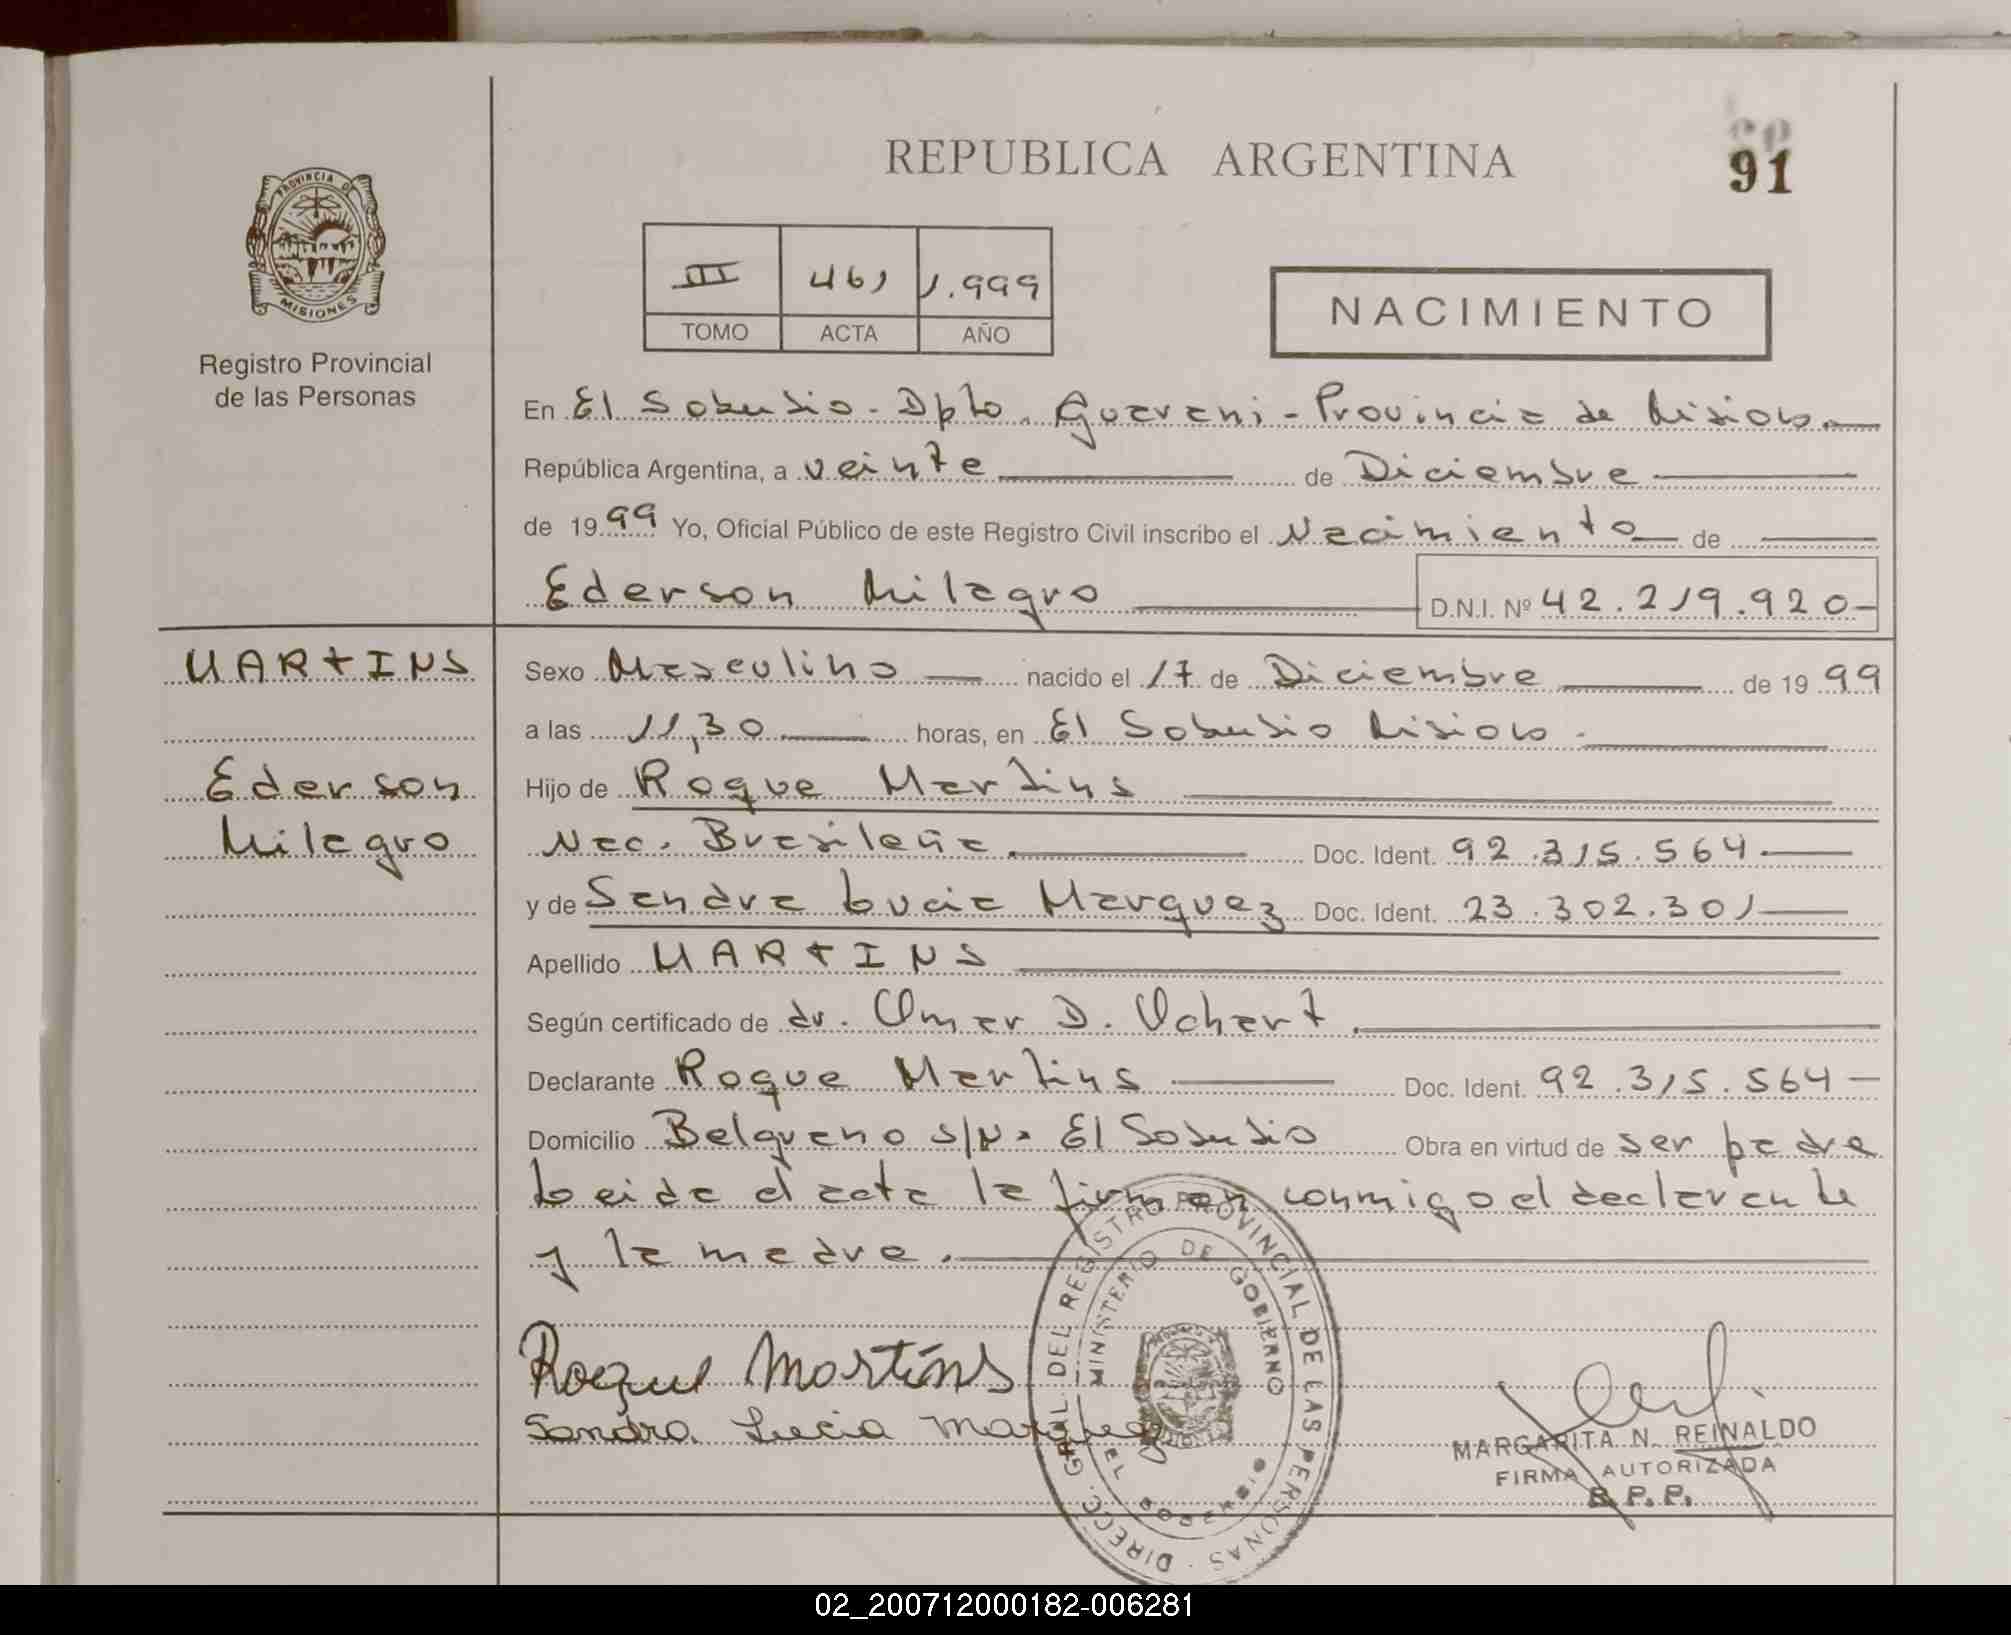 REPUBLICA ARGENTINA
91
PROVINCIA DE
MISIONES
Registro Provincial
de las Personas
III 461 1.999
TOMO ACTA AÑO
NACIMIENTO
En El Soberbio - Dpto. Guarani - Provincia de Misiones
República Argentina, a veinte de Diciembre
de 1999 Yo, Oficial Público de este Registro Civil inscribo el Nacimiento de
Ederson Milagro D.N.I. Nº 42.219.920-
MARTINS
Sexo Masculino nacido el 17 de Diciembre de 1999
a las 11,30 horas, en El Soberbio Misiones.
Ederson
Hijo de Roque Martins
Milagro
Nac. Brasileña Doc. Ident. 92.315.564
y de Sandra Lucia Marquez Doc. Ident. 23.302.301
Apellido MARTINS
Según certificado de dr. Omar D. Ochart.
Declarante Roque Martins Doc. Ident. 92.315.564
Domicilio Belgrano s/N. El Soberbio Obra en virtud de ser padre
Leida el acta la firman conmigo el declarante
y la madre.
Roque Martins
Sandra Lucia Marquez
DIRECC. GRAL. DEL REGISTRO PROVINCIAL DE LAS PERSONAS
MINISTERIO DE GOBIERNO
EL SOBERBIO
MARGARITA N. REINALDO
FIRMA AUTORIZADA
R.P.P.
02_200712000182-006281